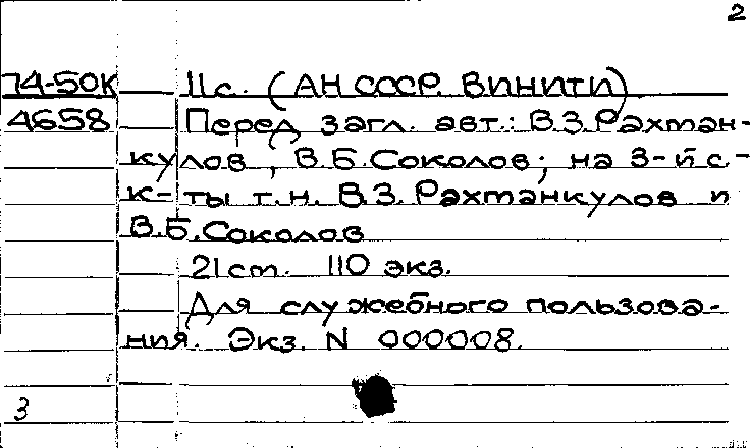 2
74-50К 11с. (АН СССР. ВИНИТИ)
4658 Перед загл. авт.: В.З.Рахтан-
кулов, В.Б.Соколов; на 3-й с-
к-ты т.н. В.З. Рахтанкулов и
В.Б.Соколов
21 см. 110 экз.
Для служебного пользова-
ния. Экз. N 000008.
3